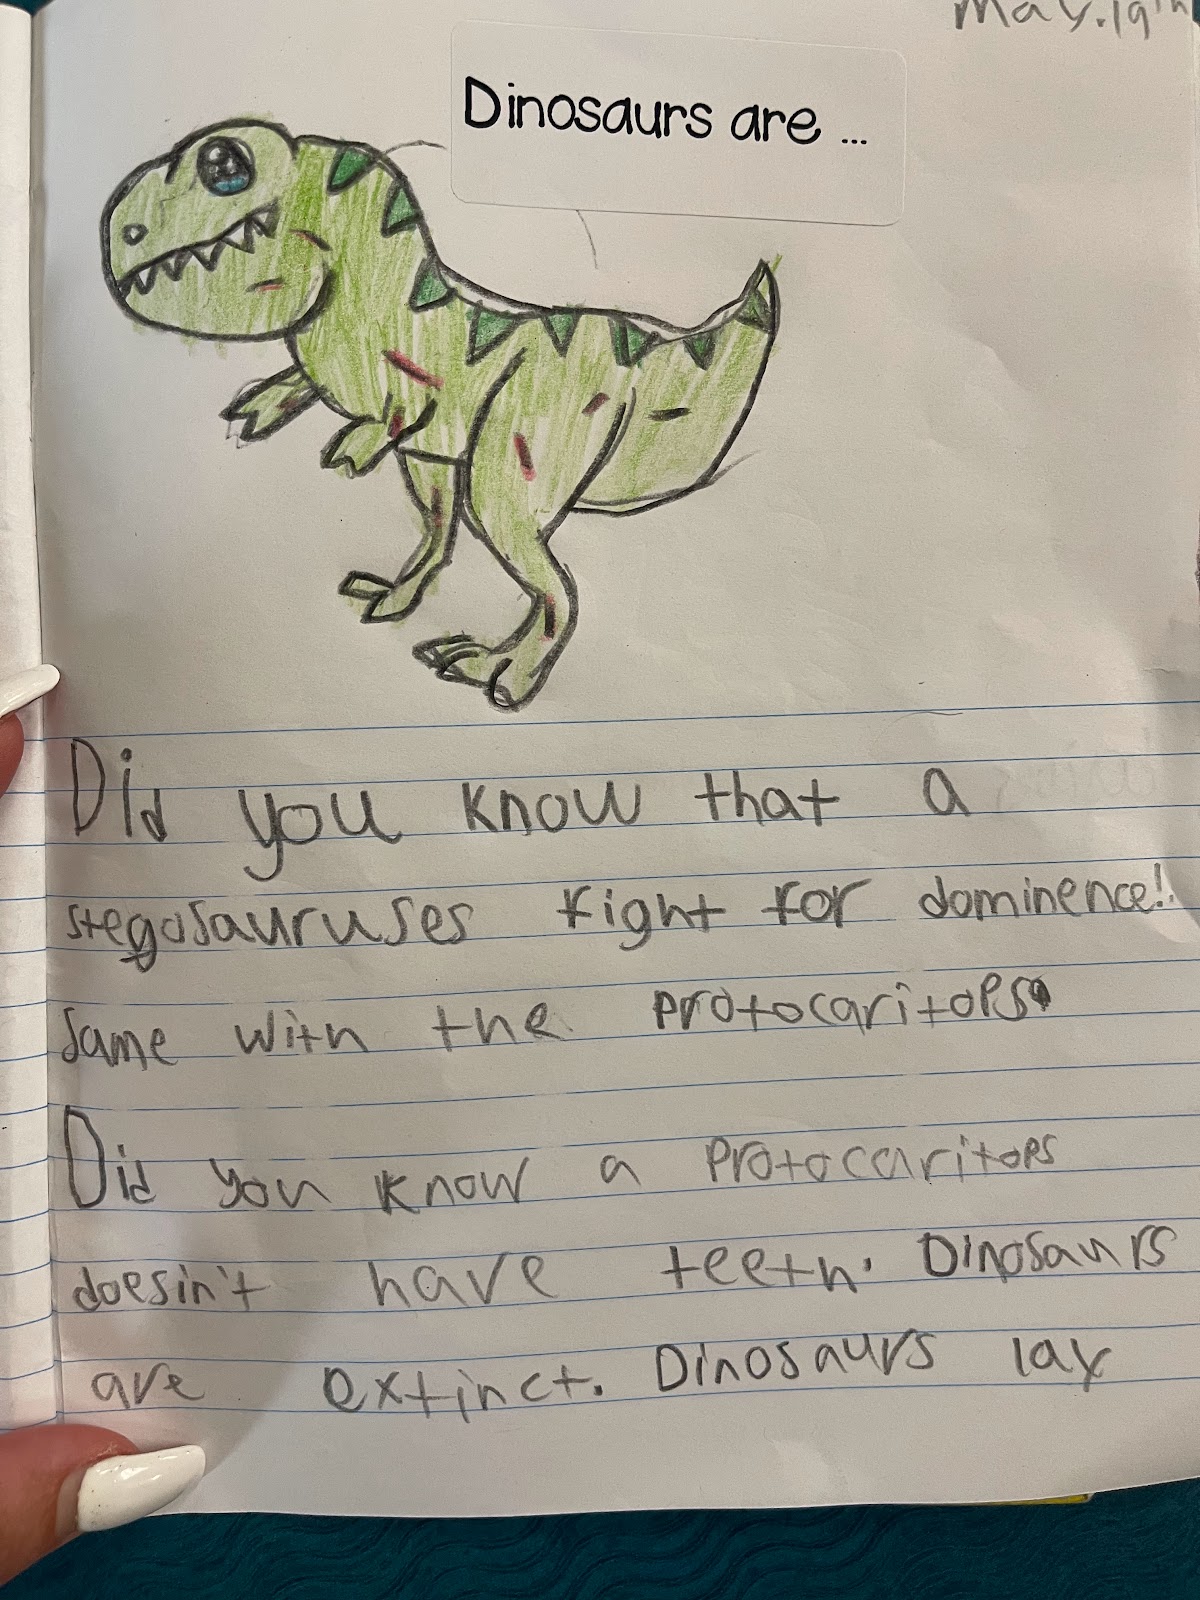 May.19th
Dinosaurs are ...
Did you know that a
stegosauruses fight for dominence!
same with the protocaritops.
Did you know a protocaritops
doesin't have teeth. Dinosaurs
are extinct. Dinosaurs lay